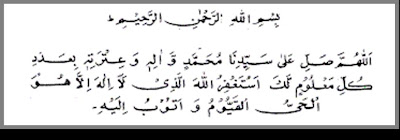 بِسْمِ اللهِ الرَّحْمٰنِ الرَّحِيْمِ ط
اَللّٰهُمَّ صَلِّ عَلىٰ سَيِّدِنَا مُحَمَّدٍ وَّ اٰلِهٖ وَ عِتْرَتِهٖ بِعَدَدِ
كُلِّ مَعْلُوْمٍ لَّكَ اَسْتَغْفِرُ اللهَ الَّذِىْ لَآ اِلٰهَ اِلَّا هُوَ
الْحَىُّ الْقَيُّوْمُ وَ اَتُوْبُ اِلَيْهِ۔